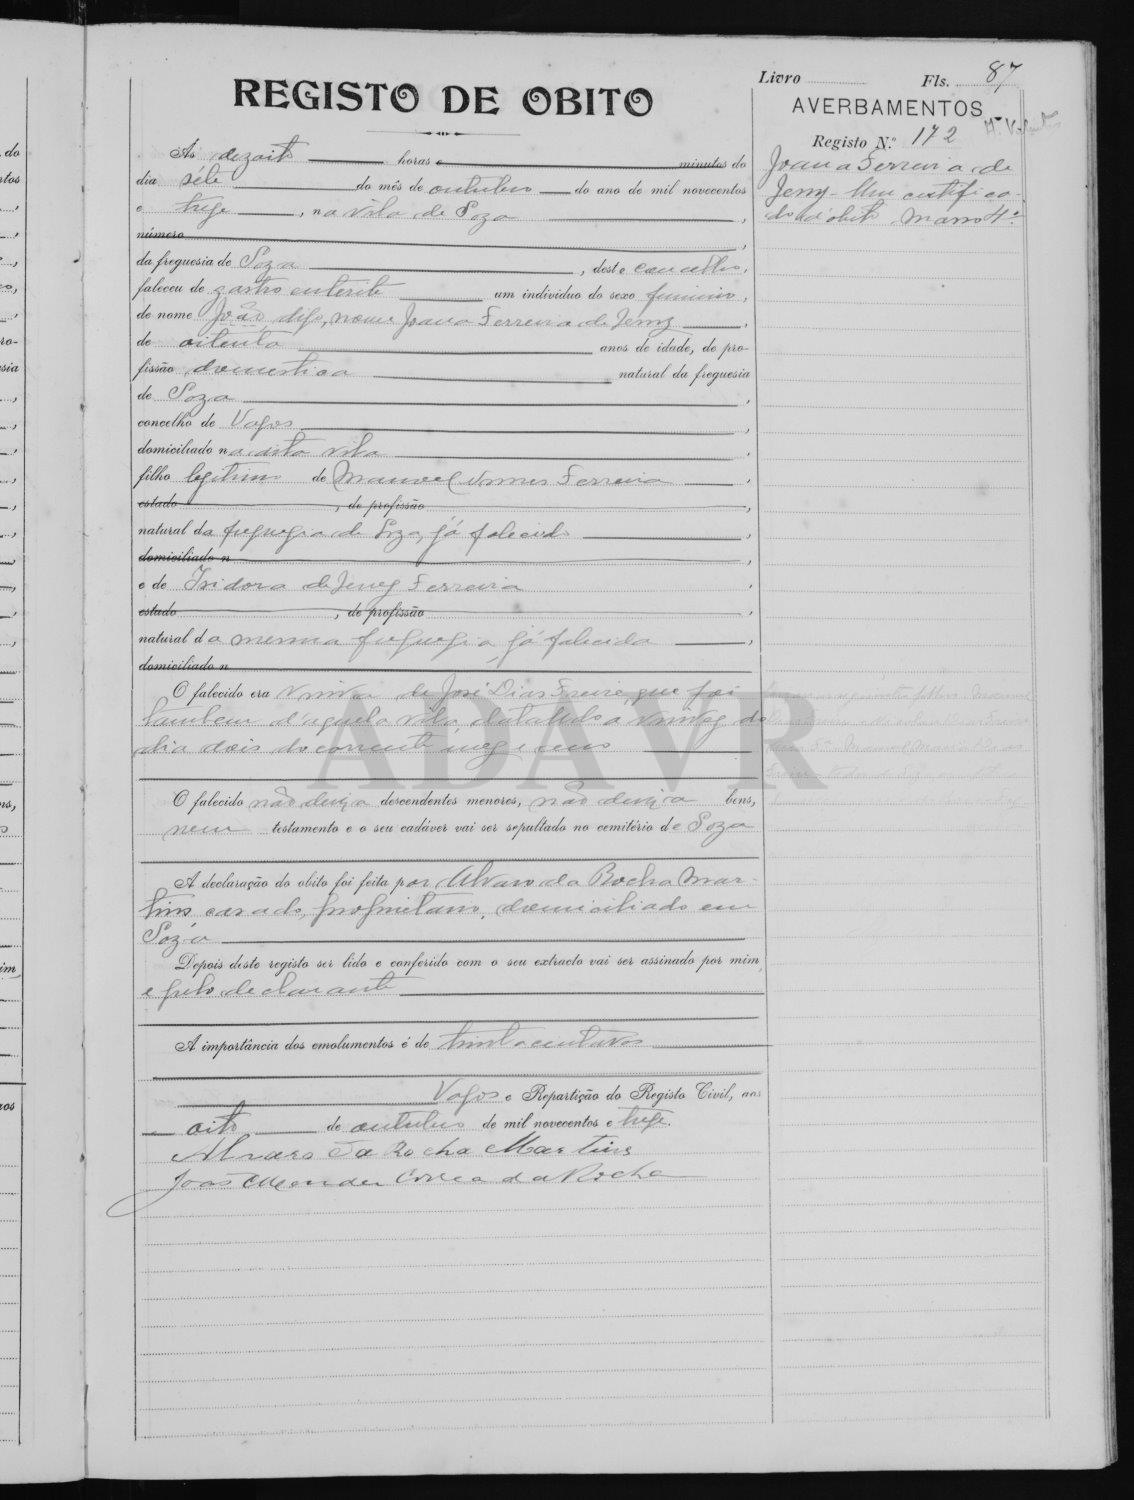 Livro Fls. 87
REGISTO DE OBITO
AVERBAMENTOS
Registo N.º 172
Joana Ferreira de
Jesus - Um certifica-
do d'obito Março 4º
Ás dezoito horas e minutos do
dia séte do mês de outubro do ano de mil novecentos
e treze, na vila de Soza,
número,
da freguesia de Soza, deste concelho,
faleceu de gastro enterite um individuo do sexo feminino,
de nome João, digo, nome Joana Ferreira de Jesus,
de oitenta anos de idade, de pro-
fissão domestica natural da freguesia
de Soza,
concelho de Vagos,
domiciliado na dita vila,
filho legitimo de Manoel Nunes Ferreira,
estado, de profissão,
natural da freguesia de Soza já falecido,
domiciliado n,
e de Isidora de Jesus Ferreira,
estado, de profissão,
natural da mesma freguesia, já falecida,
domiciliado n
O falecido era viuva de José Dias Freire, que foi
tambem d'aquela vila, datando a viuvez do
dia dois do corrente mez e ano
ADAVR
O falecido não deixa descendentes menores, não deixa bens,
nem testamento e o seu cadáver vai ser sepultado no cemitério de Soza
A declaração do obito foi feita por Alvaro da Rocha Mar-
tins casado, proprietario, domiciliado em
Soza
Depois deste registo ser lido e conferido com o seu extracto vai ser assinado por mim,
e pelo declarante
A importância dos emolumentos é de trinta centavos
Vagos e Repartição do Registo Civil, aos
oito de outubro de mil novecentos e treze.
Alvaro da Rocha Martins
João Mendes Correa da Rocha